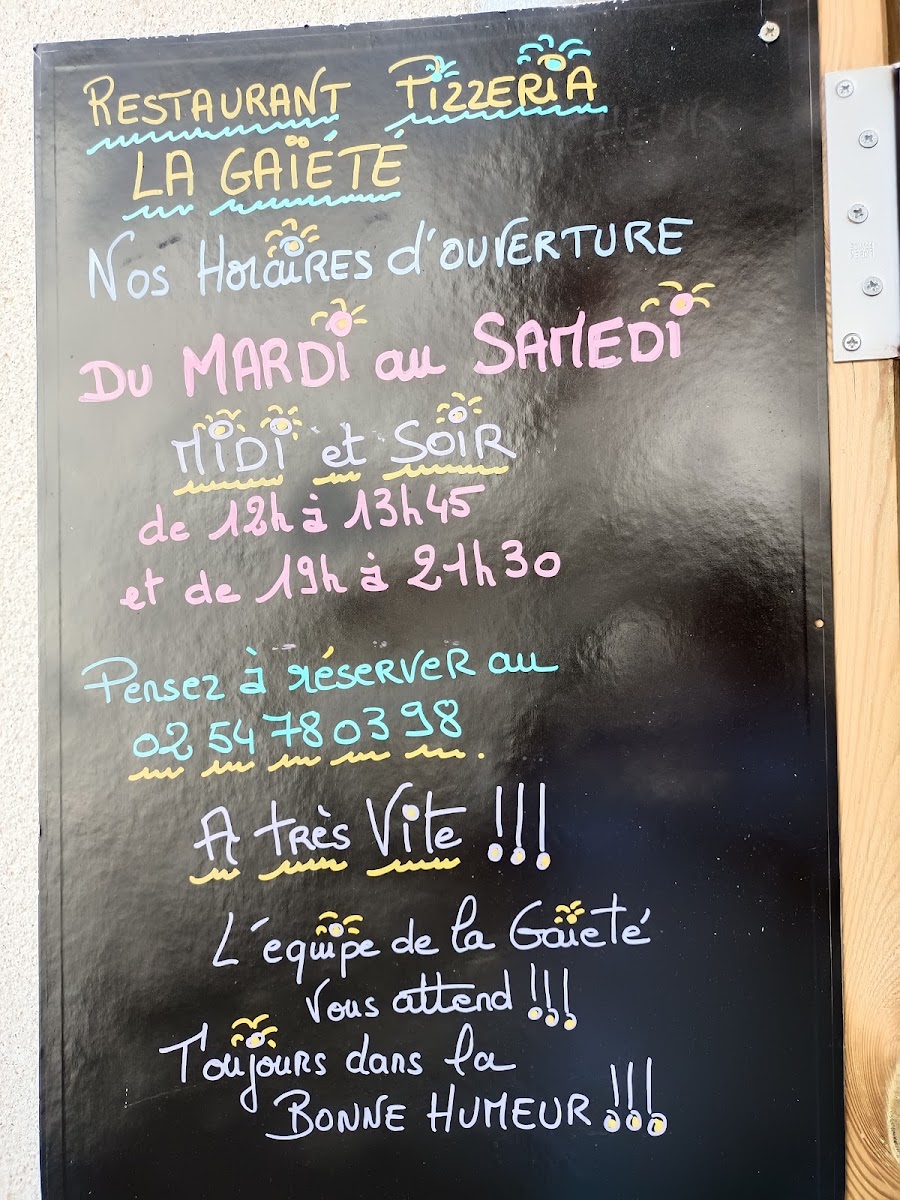 RESTAURANT PIZZERIA
LA GAÏÉTÉ
NOS HORAIRES d'OUVERTURE
DU MARDI au SAMEDI
MIDI et SOIR
de 12h à 13h45
et de 19h à 21h30
Pensez à réserver au
02 54 78 03 98.
A très Vite !!!
L'équipe de la Gaieté
vous attend !!!
Toujours dans la
BONNE HUMEUR !!!